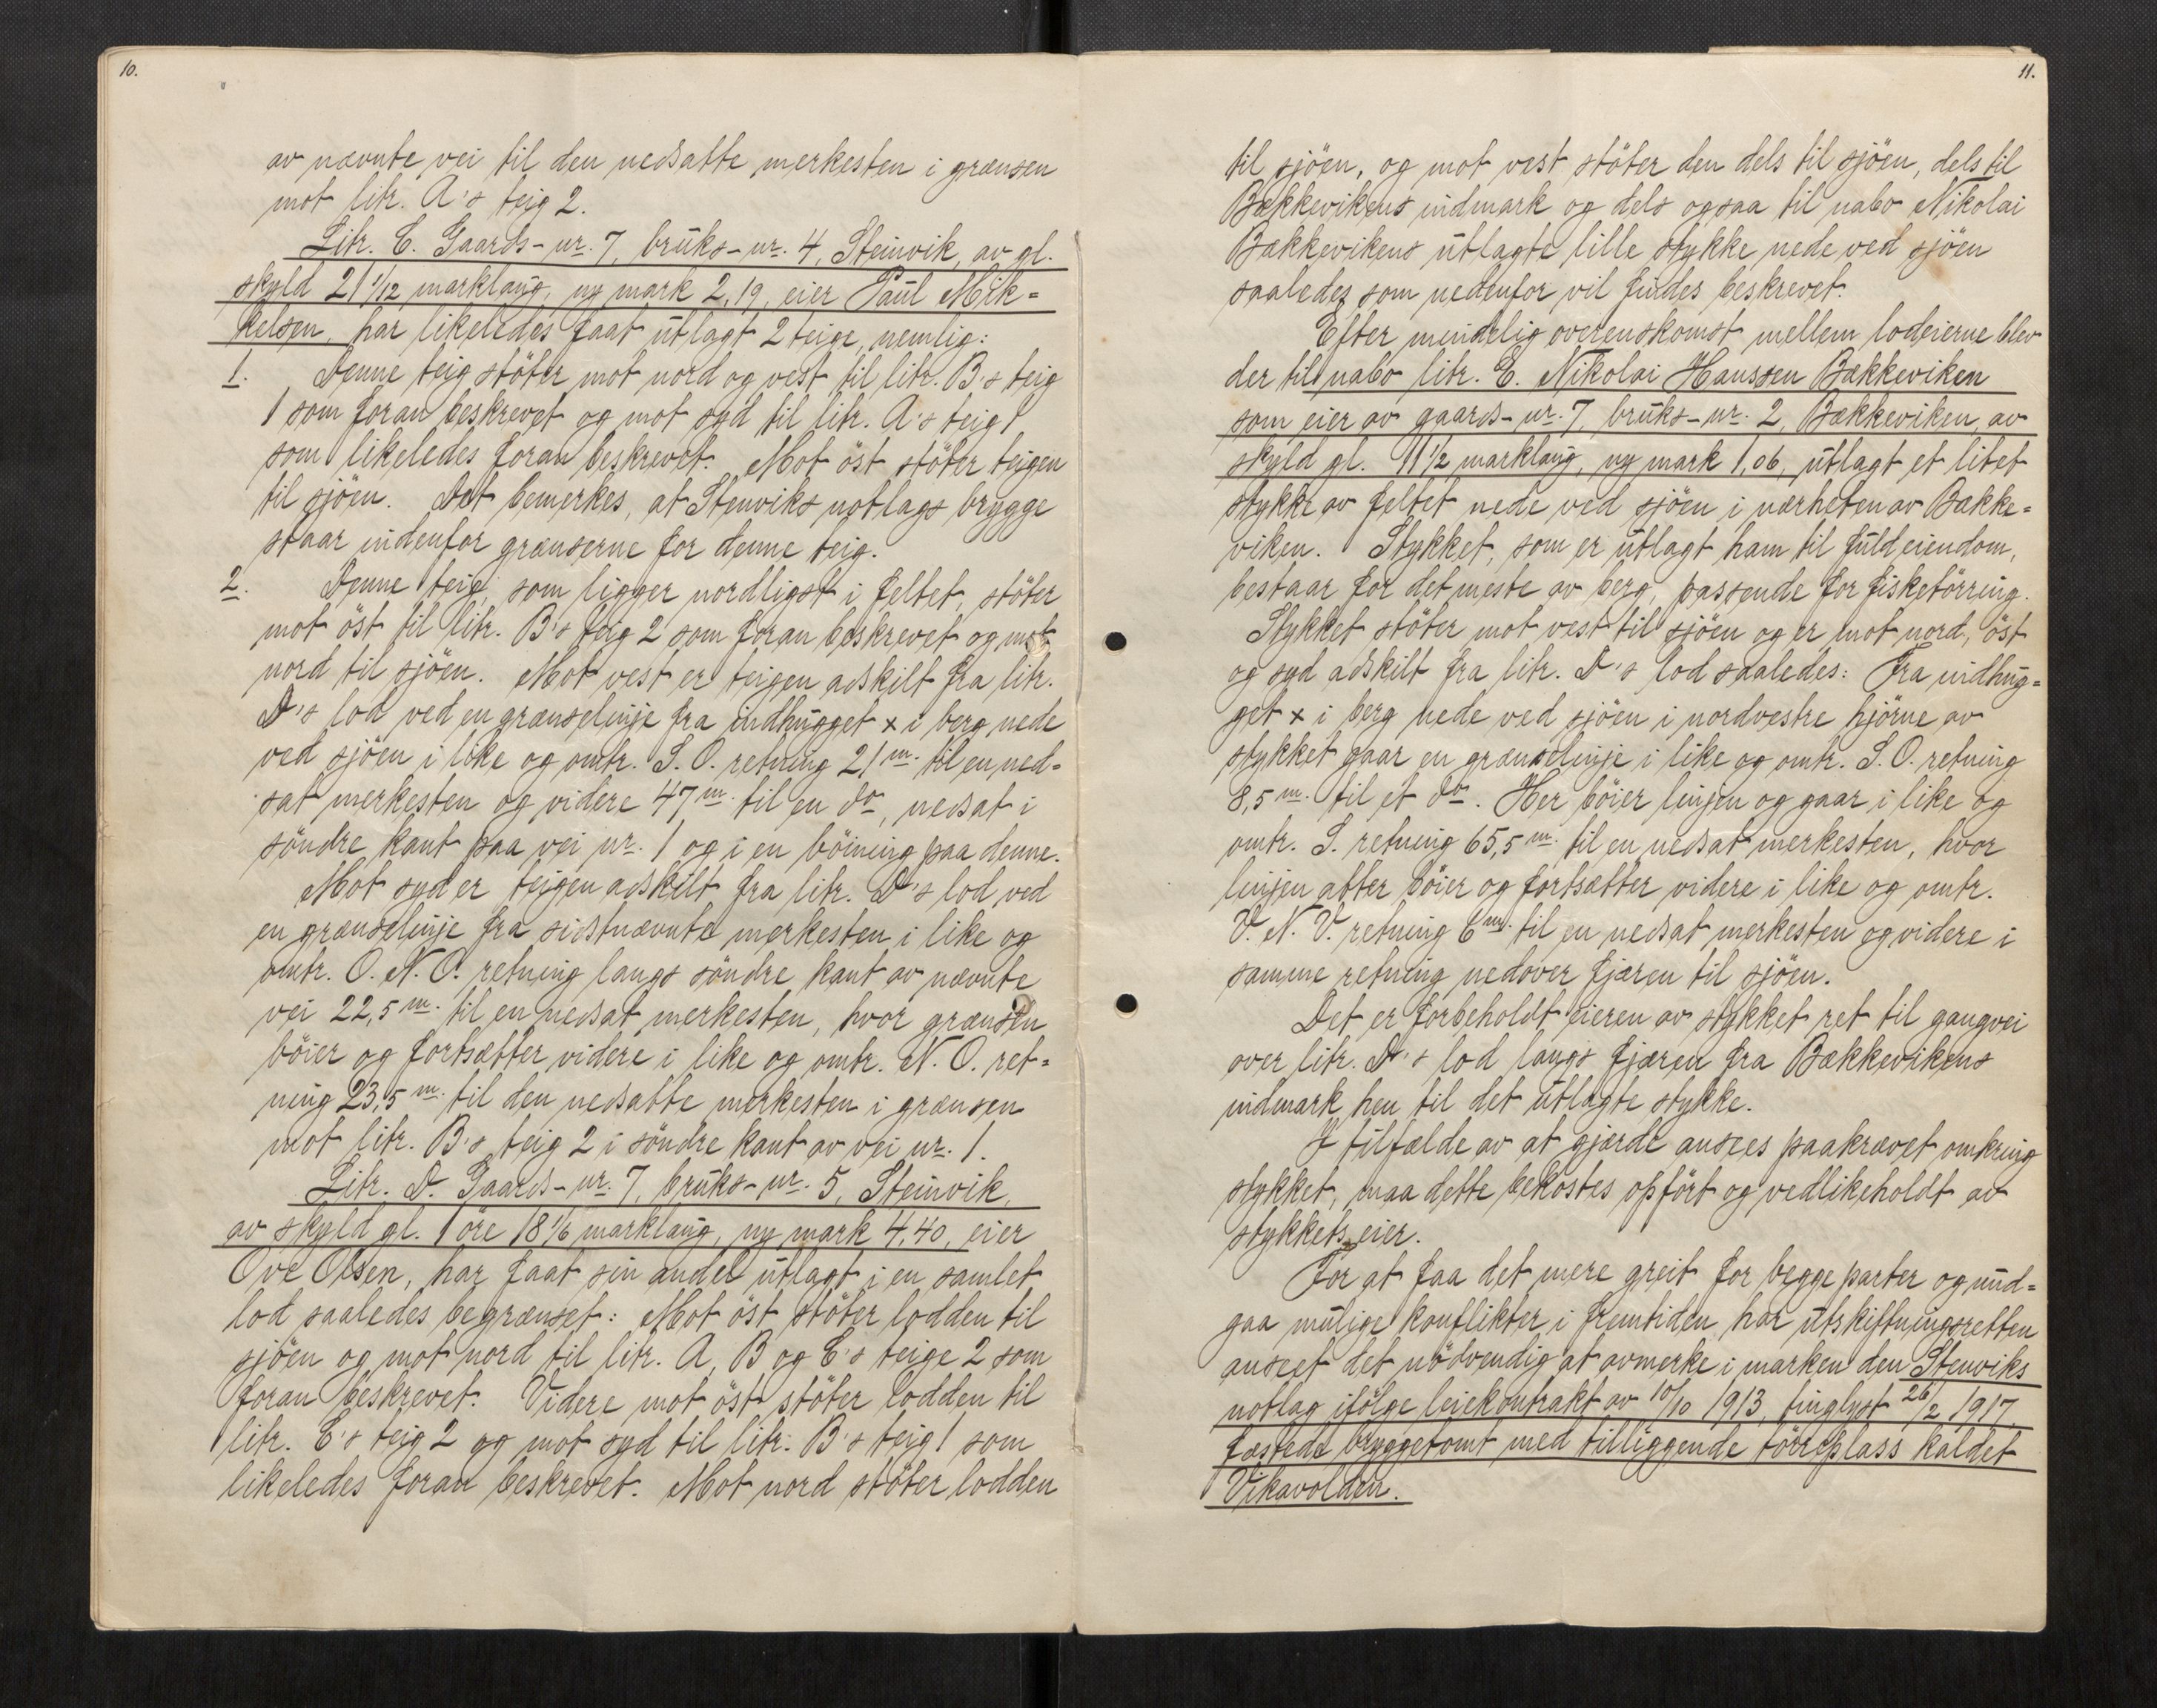 10.
av nævnte vei til den nedsatte merkesten i grænsen
mot litr. A's teig 2.
Litr. C. Gaards-nr. 7, bruks-nr. 4, Steinvik, av gl.
skyld 21 1/12 marklaug, ny mark 2,19, eier Paul Mik=
kelsen, har likeledes faat utlagt 2 teige, nemlig:
1. Denne teig støter mot nord og vest til litr. B's teig
1 som foran beskrevet og mot syd til litr. A's teig 1
som likeledes foran beskrevet. Mot øst støter teigen
til sjøen. Det bemerkes, at Stenviks notlags brygge
staar indenfor grænserne for denne teig.
2. Denne teig, som ligger nordligst i feltet, støter
mot øst til litr. B's teig 2 som foran beskrevet og mot
nord til sjøen. Mot vest er teigen adskilt fra litr.
D's lod ved en grænselinje fra indhugget x i berg nede
ved sjøen i like og omtr. S. O. retning 21 m. til en ned=
sat merkesten og videre 47 m. til en do, nedsat i
søndre kant paa vei nr. 1 og i en bøining paa denne.
Mot syd er teigen adskilt fra litr. D's lod ved
en grænselinje fra sidstnævnte merkesten i like og
omtr. O. N. O. retning langs søndre kant av nævnte
vei 22,5 m. til en nedsat merkesten, hvor grænsen
bøier og fortsætter videre i like og omtr. N. O. ret=
ning 23,5 m. til den nedsatte merkesten i grænsen
mot litr. B's teig 2 i søndre kant av vei nr. 1.
Litr. D. Gaards-nr. 7, bruks-nr. 5, Steinvik,
av skyld gl. 1 öre 18 1/6 marklaug, ny mark 4,40, eier
Ove Olsen, har faat sin andel utlagt i en samlet
lod saaledes begrænset: Mot øst støter lodden til
sjøen og mot nord til litr. A, B og C's teige 2 som
foran beskrevet. Videre mot øst støter lodden til
litr. C's teig 2 og mot syd til litr. B's teig 1 som
likeledes foran beskrevet. Mot nord støter lodden
11.
til sjøen, og mot vest støter den dels til sjøen, dels til
Bækkevikens indmark og dels ogsaa til nabo Nikolai
Bækkevikens utlagte lille stykke nede ved sjøen
saaledes som nedenfor vil findes beskrevet.
Efter mindelig overenskomst mellem lodeierne blev
der til nabo litr. E. Nikolai Hanssen Bækkeviken
som eier av gaards-nr. 7, bruks-nr. 2, Bækkeviken, av
skyld gl. 11 1/2 marklaug, ny mark 1,06, utlagt et litet
stykke av feltet nede ved sjøen i nærheten av Bække=
viken. Stykket, som er utlagt ham til fuld eiendom,
bestaar for det meste av berg, passende for fisketørring.
Stykket støter mot vest til sjøen og er mot nord, øst
og syd adskilt fra litr. D's lod saaledes: Fra indhug=
get x i berg nede ved sjøen i nordvestre hjørne av
stykket gaar en grænselinje i like og omtr. S. O. retning
8,5 m. til et do. Her bøier linjen og gaar i like og
omtr. S. retning 65,5 m. til en nedsat merkesten, hvor
linjen atter bøier og fortsætter videre i like og omtr.
V. N. V. retning 6 m. til en nedsat merkesten og videre i
samme retning nedover fjæren til sjøen.
Det er forbeholdt eieren av stykket ret til gangvei
over litr. D's lod langs fjæren fra Bækkevikens
indmark hen til det utlagte stykke.
I tilfælde av at gjærde ansees paakrævet omkring
stykket, maa dette bekostes opført og vedlikeholdt av
stykkets eier.
For at faa det mere greit for begge parter og und=
gaa mulige konflikter i fremtiden har utskiftningsretten
anseet det nødvendig at avmerke i marken den Stenviks
notlag ifølge leiekontrakt av 10/10 1913, tinglyst 26/2 1917,
fæstede bryggetomt med tilliggende tørreplass kaldet
Vikavolden.